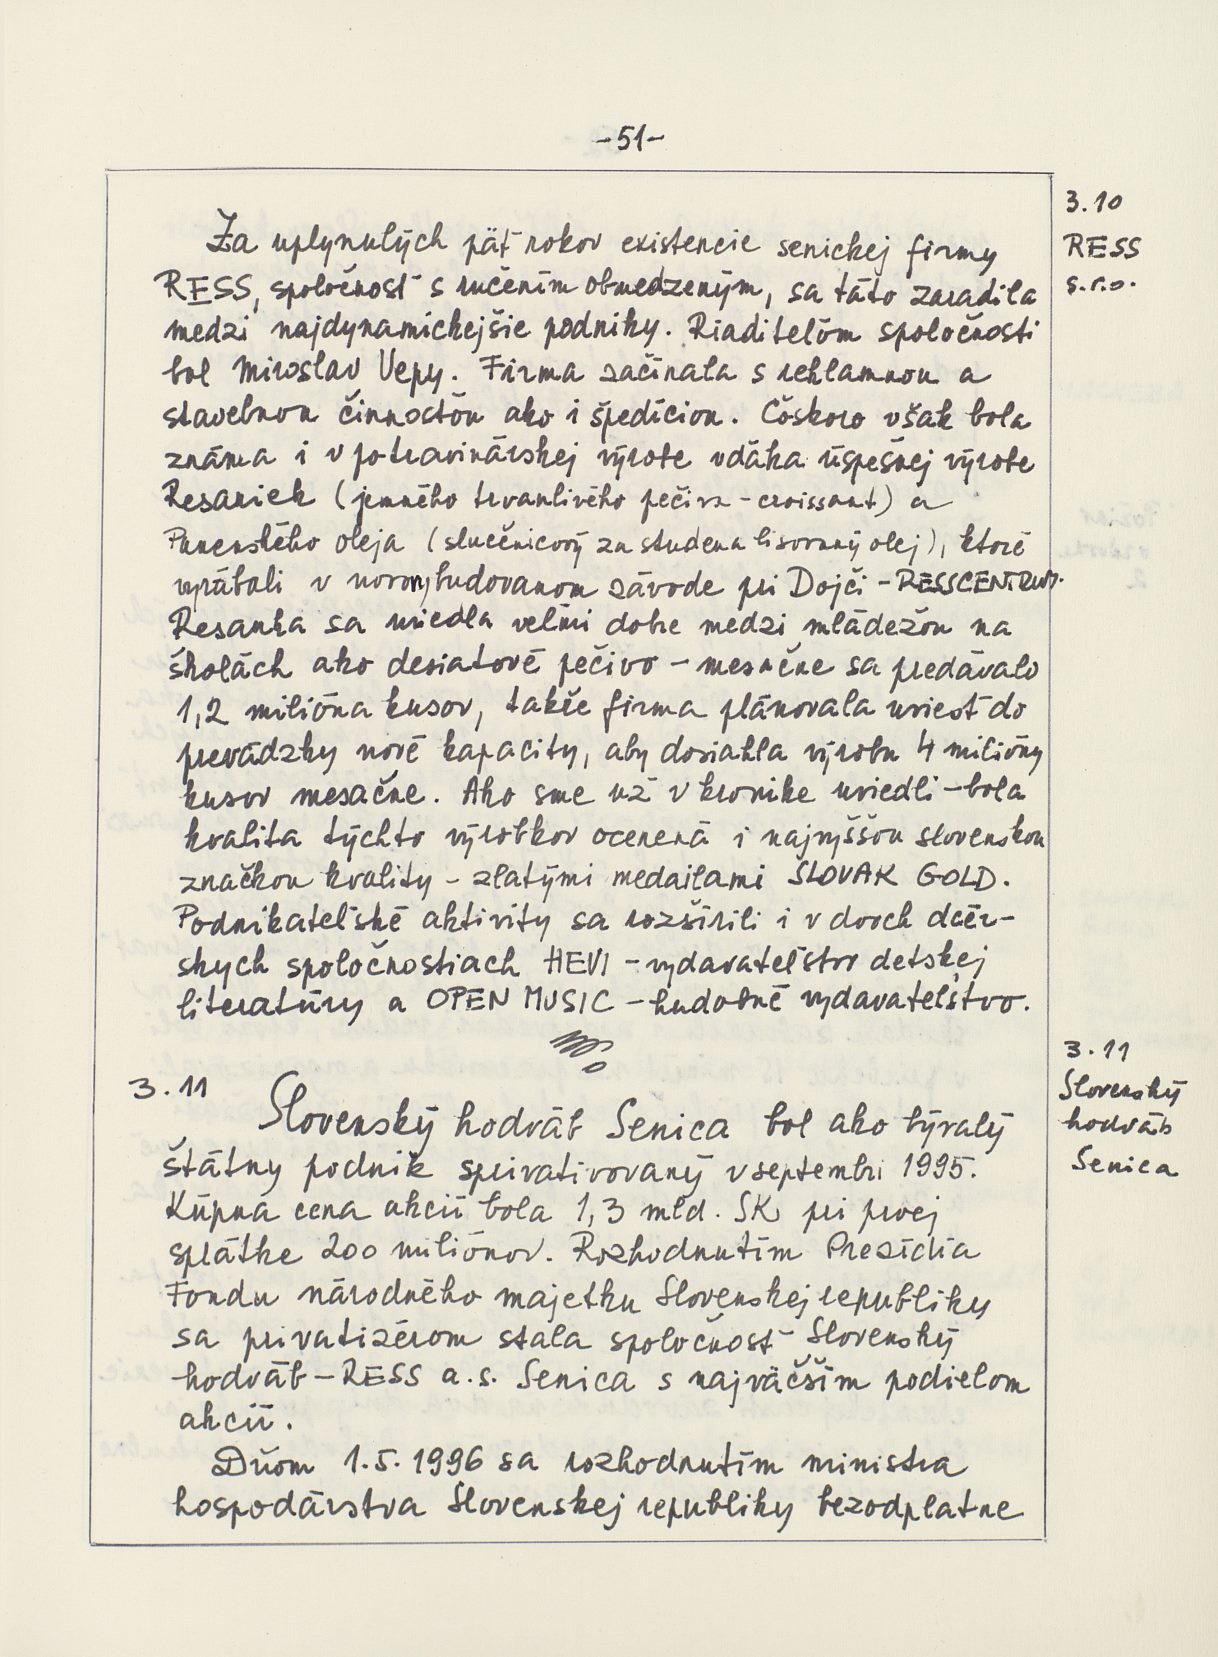 -51-
3.10
RESS
s.r.o.
Za uplynulých päť rokov existencie senickej firmy
RESS, spoločnosť s ručením obmedzeným, sa táto zaradila
medzi najdynamickejšie podniky. Riaditeľom spoločnosti
bol Miroslav Vepy. Firma začínala s reklamnou a
stavebnou činnosťou ako i špedíciou. Čoskoro však bola
známa i v potravinárskej výrobe vďaka úspešnej výrobe
Resaniek (jemného trvanlivého pečiva - croissant) a
Panenského oleja (slučenicový za studena lisovaný olej), ktoré
vyrábali v novovybudovanom závode pri Dojči - RESSCENTRUM.
Resanka sa uviedla veľmi dobre medzi mládežou na
školách ako desiatové pečivo - mesačne sa predávalo
1,2 milióna kusov, takže firma plánovala uviesť do
prevádzky nové kapacity, aby dosiahla výrobu 4 milióny
kusov mesačne. Ako sme už v kronike uviedli - bola
kvalita týchto výrobkov ocenená i najvyššou slovenskou
značkou kvality - zlatými medailami SLOVAK GOLD.
Podnikateľské aktivity sa rozšírili i v dvoch dcér-
skych spoločnostiach HEVI - vydavateľstvo detskej
literatúry a OPEN MUSIC - hudobné vydavateľstvo.
3.11
Slovenský
hodváb
Senica
3.11 Slovenský hodváb Senica bol ako bývalý
štátny podnik sprivativovaný v septembri 1995.
Kúpna cena akcií bola 1,3 mld. SK pri prvej
splátke 200 miliónov. Rozhodnutím Prezídia
Fondu národného majetku Slovenskej republiky
sa privatizérom stala spoločnosť Slovenský
hodváb - RESS a.s. Senica s najväčším podielom
akcií.
Dňom 1.5.1996 sa rozhodnutím ministra
hospodárstva Slovenskej republiky bezodplatne